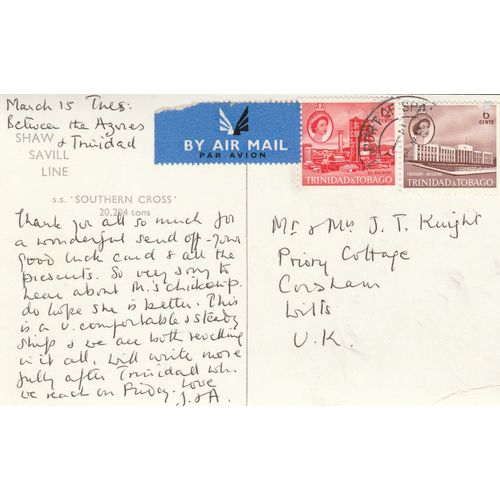 March 15 Tues:
Between the Azores
& Trinidad
SHAW
SAVILL
LINE
s.s. 'SOUTHERN CROSS'
20,204 tons
Thank you all so much for
a wonderful send off - your
good luck card & all the
presents. So very sorry to
hear about M.'s chickenp.
do hope she is better. This
is a v. comfortable & steady
ship & we are both revelling
in it all. Will write more
fully after Trinidad wh.
we reach on Friday. Love
J. & A.
BY AIR MAIL
PAR AVION
CENTS
OIL REFINERY
TRINIDAD & TOBAGO
PORT OF SPAIN
6
CENTS
TREASURY BUILDING
TRINIDAD & TOBAGO
Mr & Mrs J. T. Knight
Priory Cottage
Corsham
Wilts
U.K.